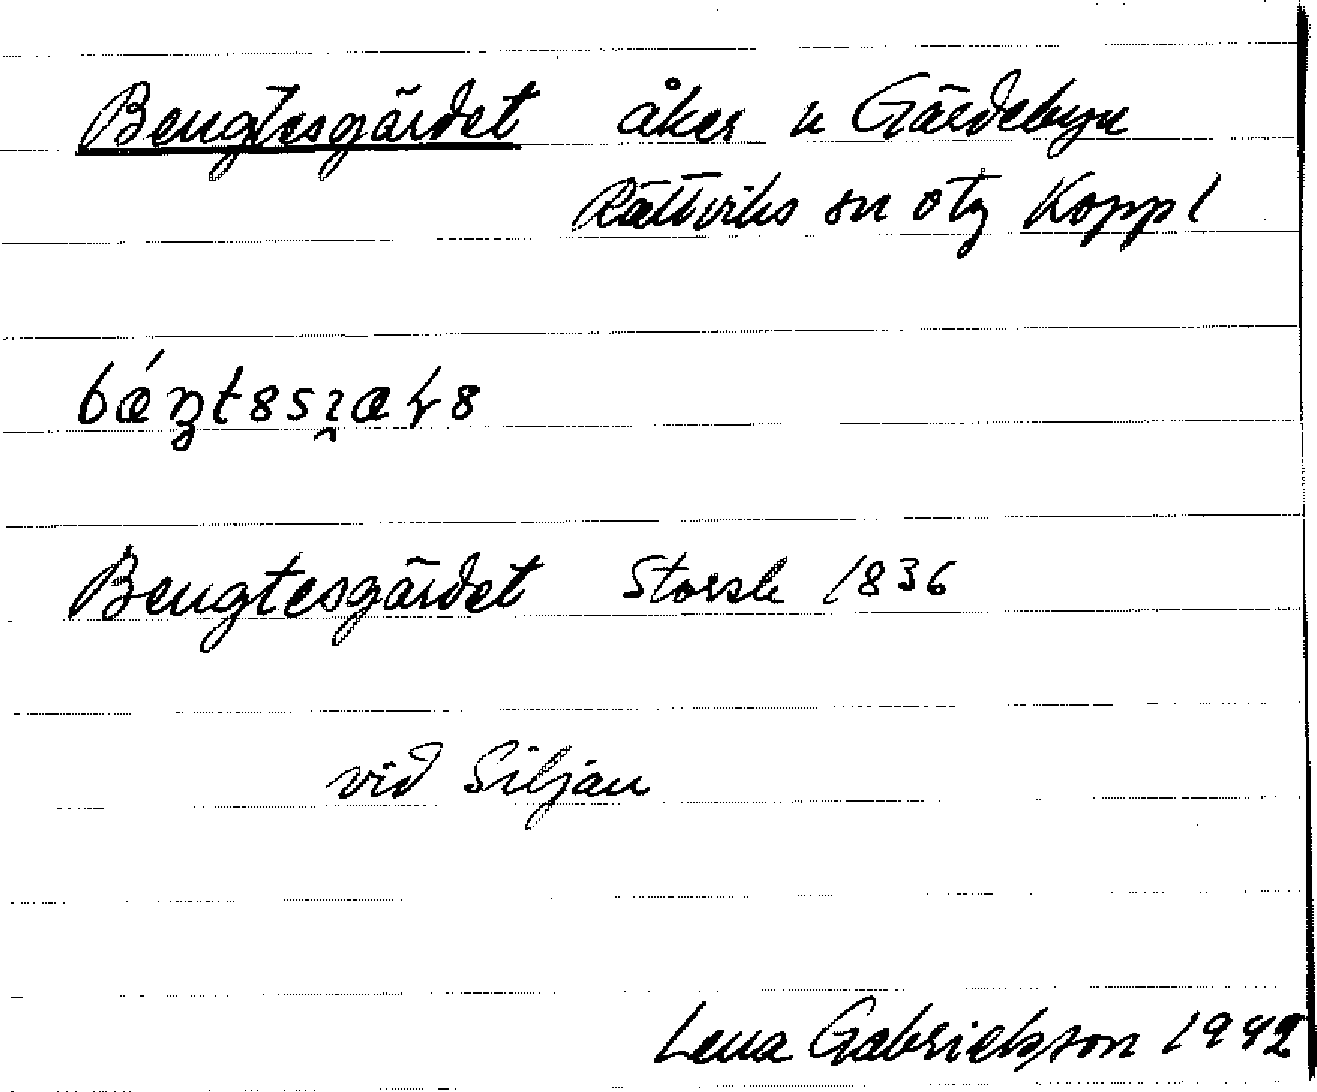 Bengtesgärdet åker n Gärdebyn
Rättviks sn o tg Koppl
Bengtesgärdet Storsk 1836
vid Siljan
Lena Gabrielsson 1942